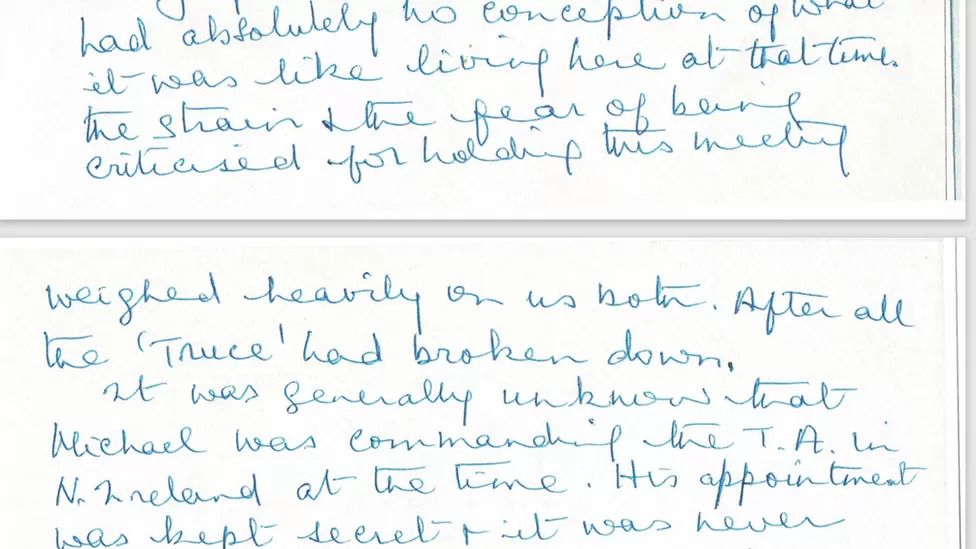 had absolutely no conception of what
it was like living here at that time.
the strain & the fear of being
criticised for holding this meeting
weighed heavily on us both. After all
the 'Truce' had broken down.
It was generally unknown that
Michael was commanding the T.A. in
N. Ireland at the time. His appointment
was kept secret & it was never